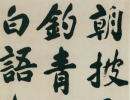 朝披
釣青
白語